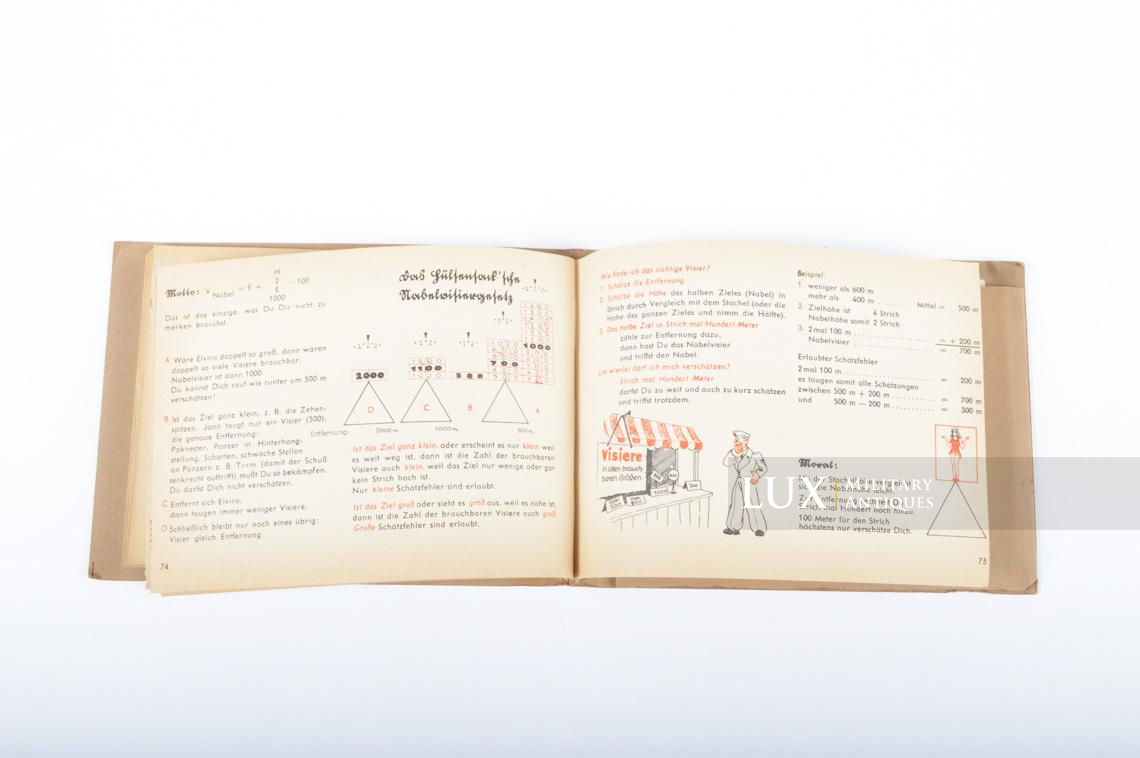 Motto: V Nabel = E + H 2 E 1000 · 100
Das ist das einzige, was Du Dir nicht zu
merken brauchst.
A Wäre Elvira doppelt so groß, dann wären
doppelt so viele Visiere brauchbar.
Nabelvisier ist dann 1000.
Du kannst Dich rauf wie runter um 500 m
verschätzen!
B Ist das Ziel ganz klein, z. B. die Zehen-
spitzen, dann taugt nur ein Visier (500),
die genaue Entfernung:
Paknester, Panzer in Hinterhang-
stellung, Scharten, schwache Stellen
an Panzern z. B. Turm (damit der Schuß
senkrecht auftrifft) mußt Du so bekämpfen.
Du darfst Dich nicht verschätzen.
C Entfernt sich Elvira,
dann taugen immer weniger Visiere.
D Schließlich bleibt nur noch eines übrig:
Visier gleich Entfernung.
74
Das Hülsensack'sche
Nabelvisiergesetz
2000
1100
500
700
1000
D
C
B
A
Entfernung:
2000 m
1000 m
500 m
Ist das Ziel ganz klein, oder erscheint es nur klein weil
es weit weg ist, dann ist die Zahl der brauchbaren
Visiere auch klein, weil das Ziel nur wenige oder gar
kein Strich hoch ist.
Nur kleine Schätzfehler sind erlaubt.
Ist das Ziel groß oder sieht es groß aus, weil es nahe ist,
dann ist die Zahl der brauchbaren Visiere auch groß.
Große Schätzfehler sind erlaubt.
Wie finde ich das richtige Visier?
1. Schätze die Entfernung
2. Schätze die Höhe des halben Zieles (Nabel) in
Strich durch Vergleich mit dem Stachel (oder die
Höhe des ganzen Zieles und nimm die Hälfte).
3. Das halbe Ziel in Strich mal Hundert Meter
zähle zur Entfernung dazu,
dann hast Du das Nabelvisier
und triffst den Nabel.
Um wieviel darf ich mich verschätzen?
Strich mal Hundert Meter
darfst Du zu weit und auch zu kurz schätzen
und triffst trotzdem.
Visiere
in allen brauch-
baren Größen.
Beispiel:
1. weniger als 600 m
mehr als 400 m ........ Mittel = 500 m
2. Zielhöhe ist 4 Strich
Nabelhöhe somit 2 Strich
3. 2 mal 100 m ........ = + 200 m
Nabelvisier ........ = 700 m
Erlaubter Schätzfehler
2 mal 100 m ........ = 200 m
es taugen somit alle Schätzungen
zwischen 500 m + 200 m ........ = 700 m
und 500 m — 200 m ........ = 300 m
Moral:
Mit der Stachel
sich die Nabelhöhe leicht.
Zur Entfernung
Strich mal Hundert noch hinzu.
100 Meter für den Strich
höchstens nur verschätze Dich.
75
LUX MILITARY
ANTIQUES